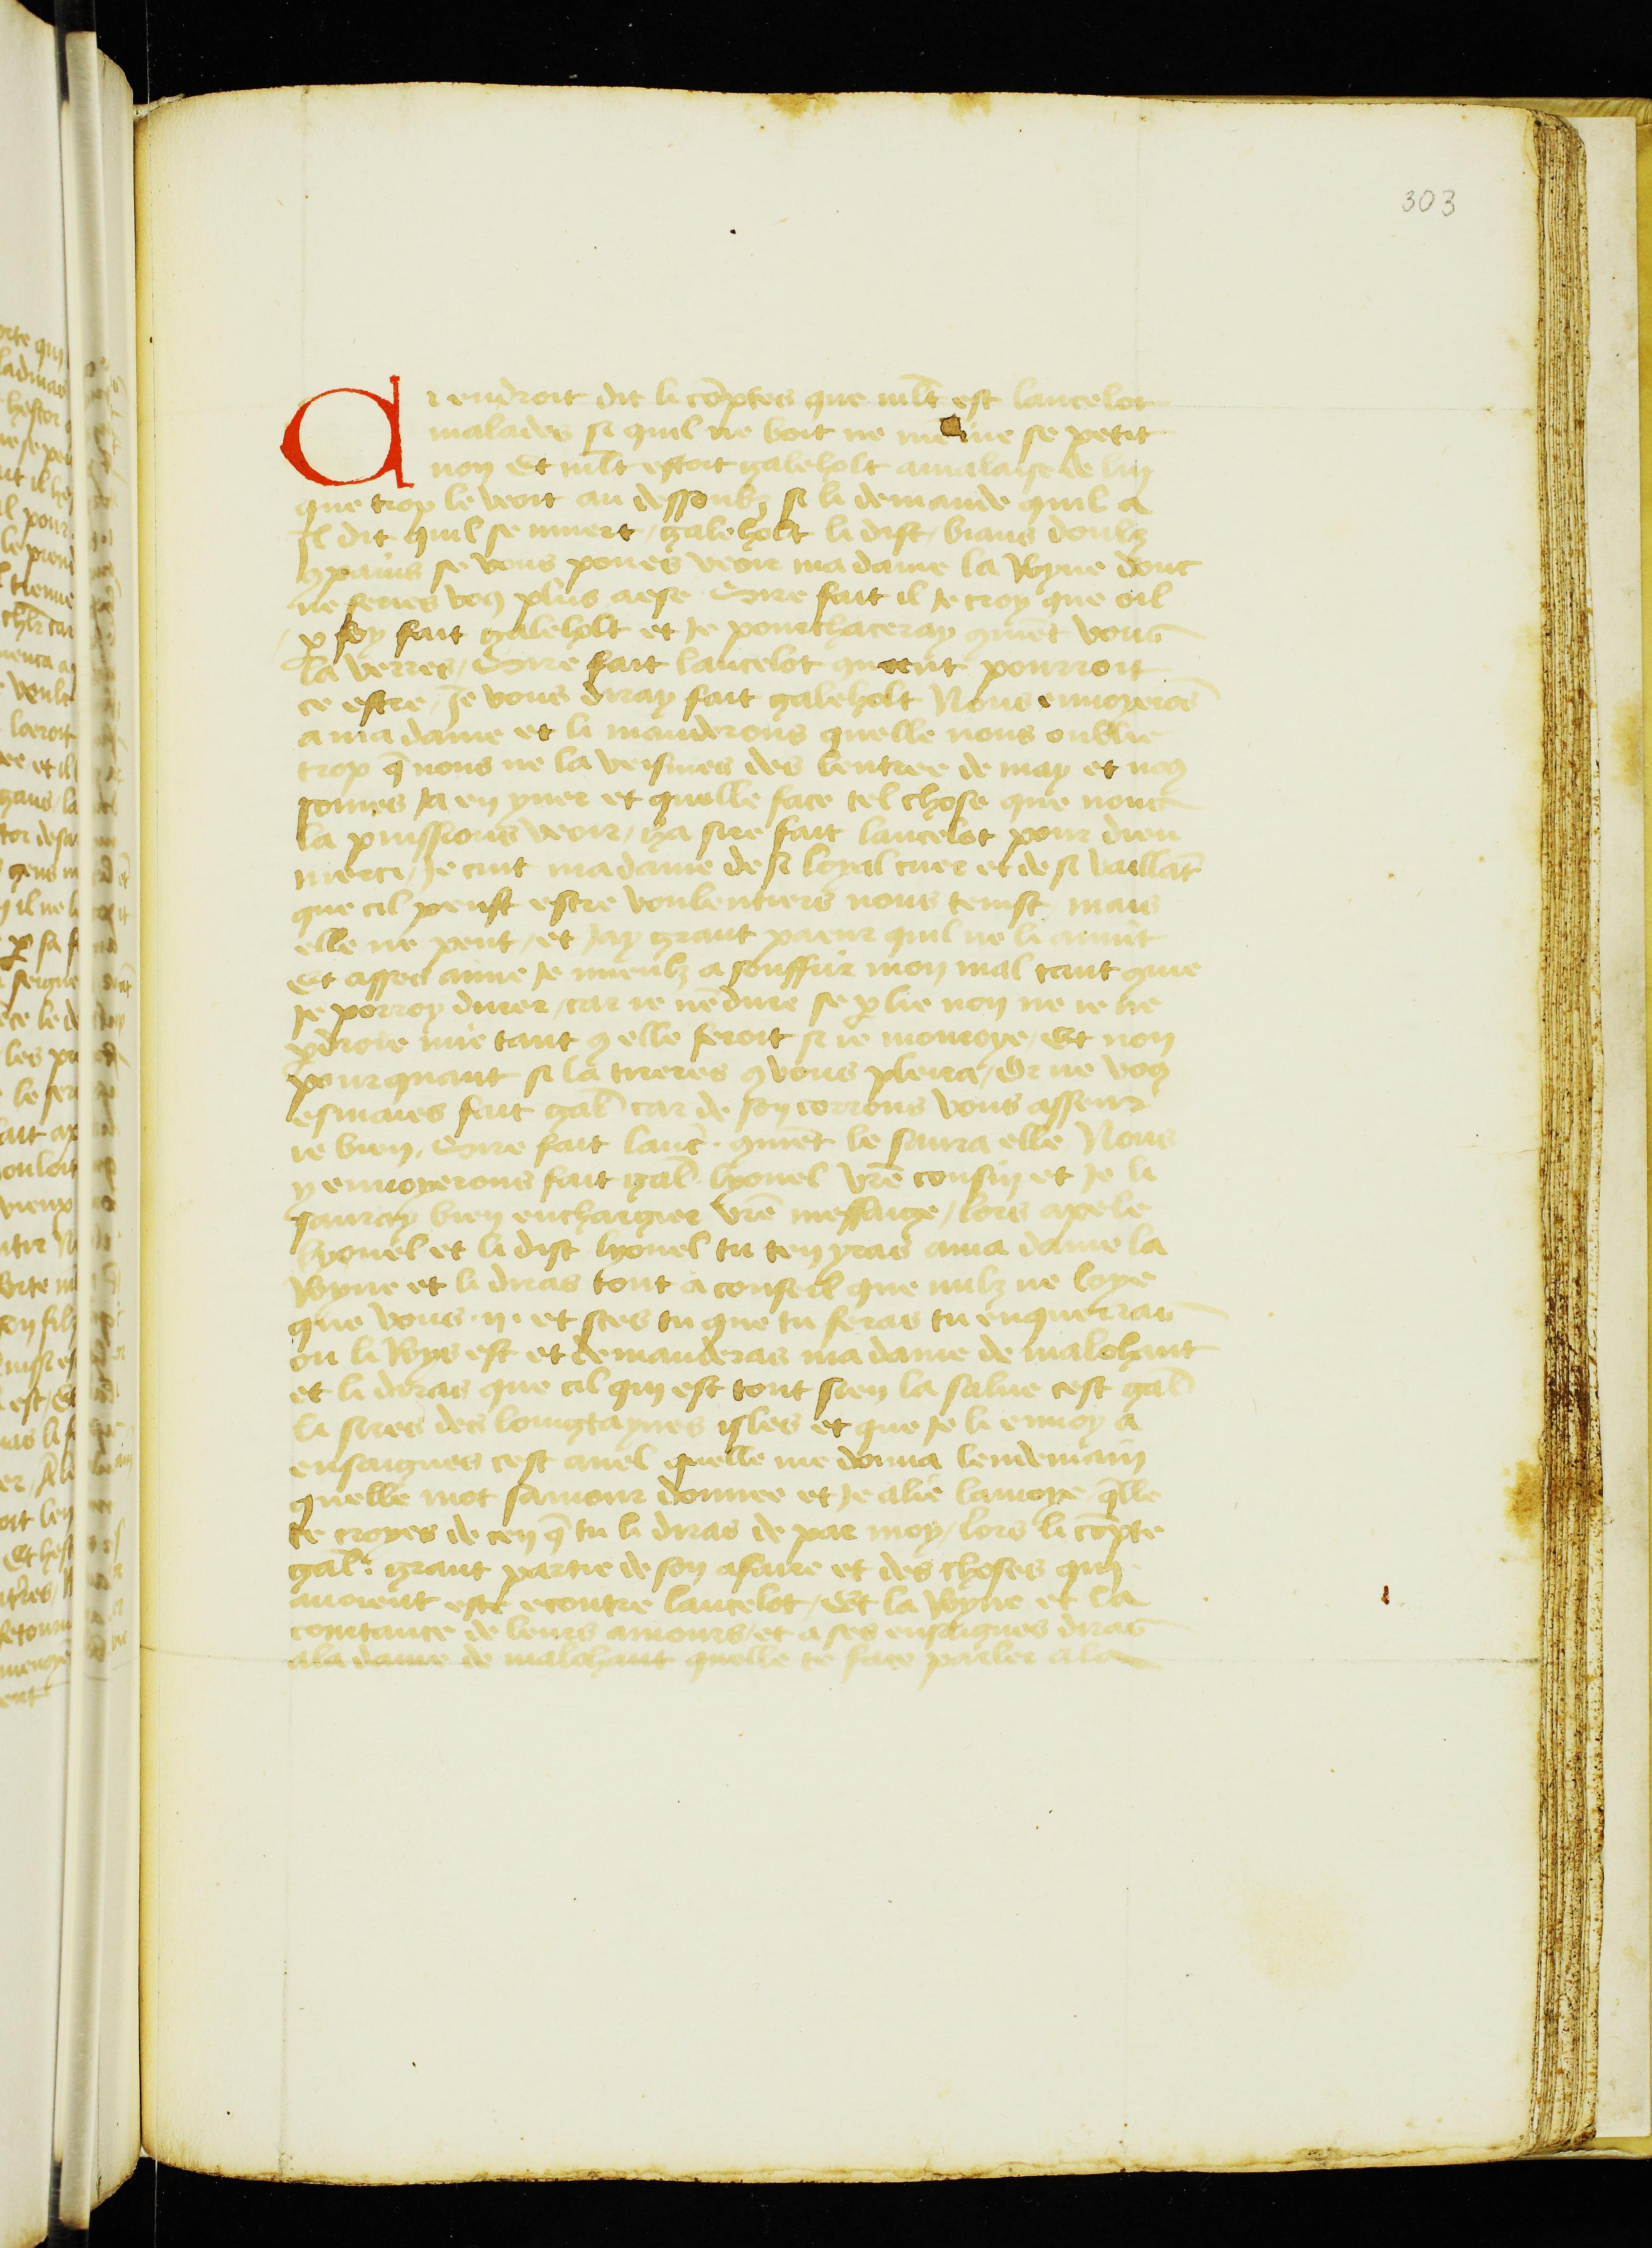 303
Ci endroit dit li cōptes que mlt̄ est lancelot
malades si quil ne boit ne me ine se petit
non Et mlt̄ estoit galeholt amalaise de luy
que trop le veoit au dessoubz si li demande quil a
Il dit quil se muert / galeholt li dist / biaus doulz
ꝯpains se vous poues veoir ma dame la Royne donc
ne series voꝰ plus aese Sire fait il Je croy que oil
ꝑ foy fait galeholt et Je pourchaceray ꝯmēt vous
la verres / Sire fait lancelot pourroit
ce estre / Je vous diray fait galeholt Nous enuoyerōs
a ma dame et li manderons quelle nous oublie
trop q̄ nous ne la veismes des lentree de may et noꝰ
somes Ja en yuer et quelle face tel chose que nous
la puissions veoir / ha sire fait lancelot pour dieu
merci / Je cuit ma dame de si loyal cuer et de si vaillāt
que cil peust estre voulentiers nous tenist mais
elle ne peut / et Jay grant paeur quil ne li anuit
Et asses aime Je mieulz a souffrir mon mal tant que
Je porroy durer / car ie nē dure se ꝑ lie non ne ie ne
ꝑdroie mie tant ꝯ elle feroit si ie moroye / Et non
pourquant si la tireres ꝯ vous pleira / Or ne voꝰ
esmaies fait gal̄ car de son corrous vous asseur
ie bien / Sire fait lanc̄ . ꝯmēt le saura elle Nous
y enuoyerons fait gal̄ lyonel vr̄e cousin et Je li
sauray bien enchargier vr̄e messaige / lors apele
lyonel et li dist lyonel tu ten yras a ma dame la
Royne et li diras tout a conseil que nulz ne loye
que vous .ii. et sces tu que tu feras tu enquerras
ou li Roys est et demanderas ma dame de malohaut
et li diras que cil qui est tout sien la salue cest gal̄
li sires des loingtaynes isles et que Je li enuoy a
ensaignes cest anel quelle me donna lendemain
quelle mot samour donnee et Je a lie lamoye q̄lle
te croyes de cen q̄ tu li diras de par moy / lors li cōpte
gal̄. grant partie de son afaire et des choses qui
auoient este econtre lancelot / Et la Royne et la
contance de leurs amours / et a ses ensaignes diras
a la dame de malohaut quelle te face parler a la